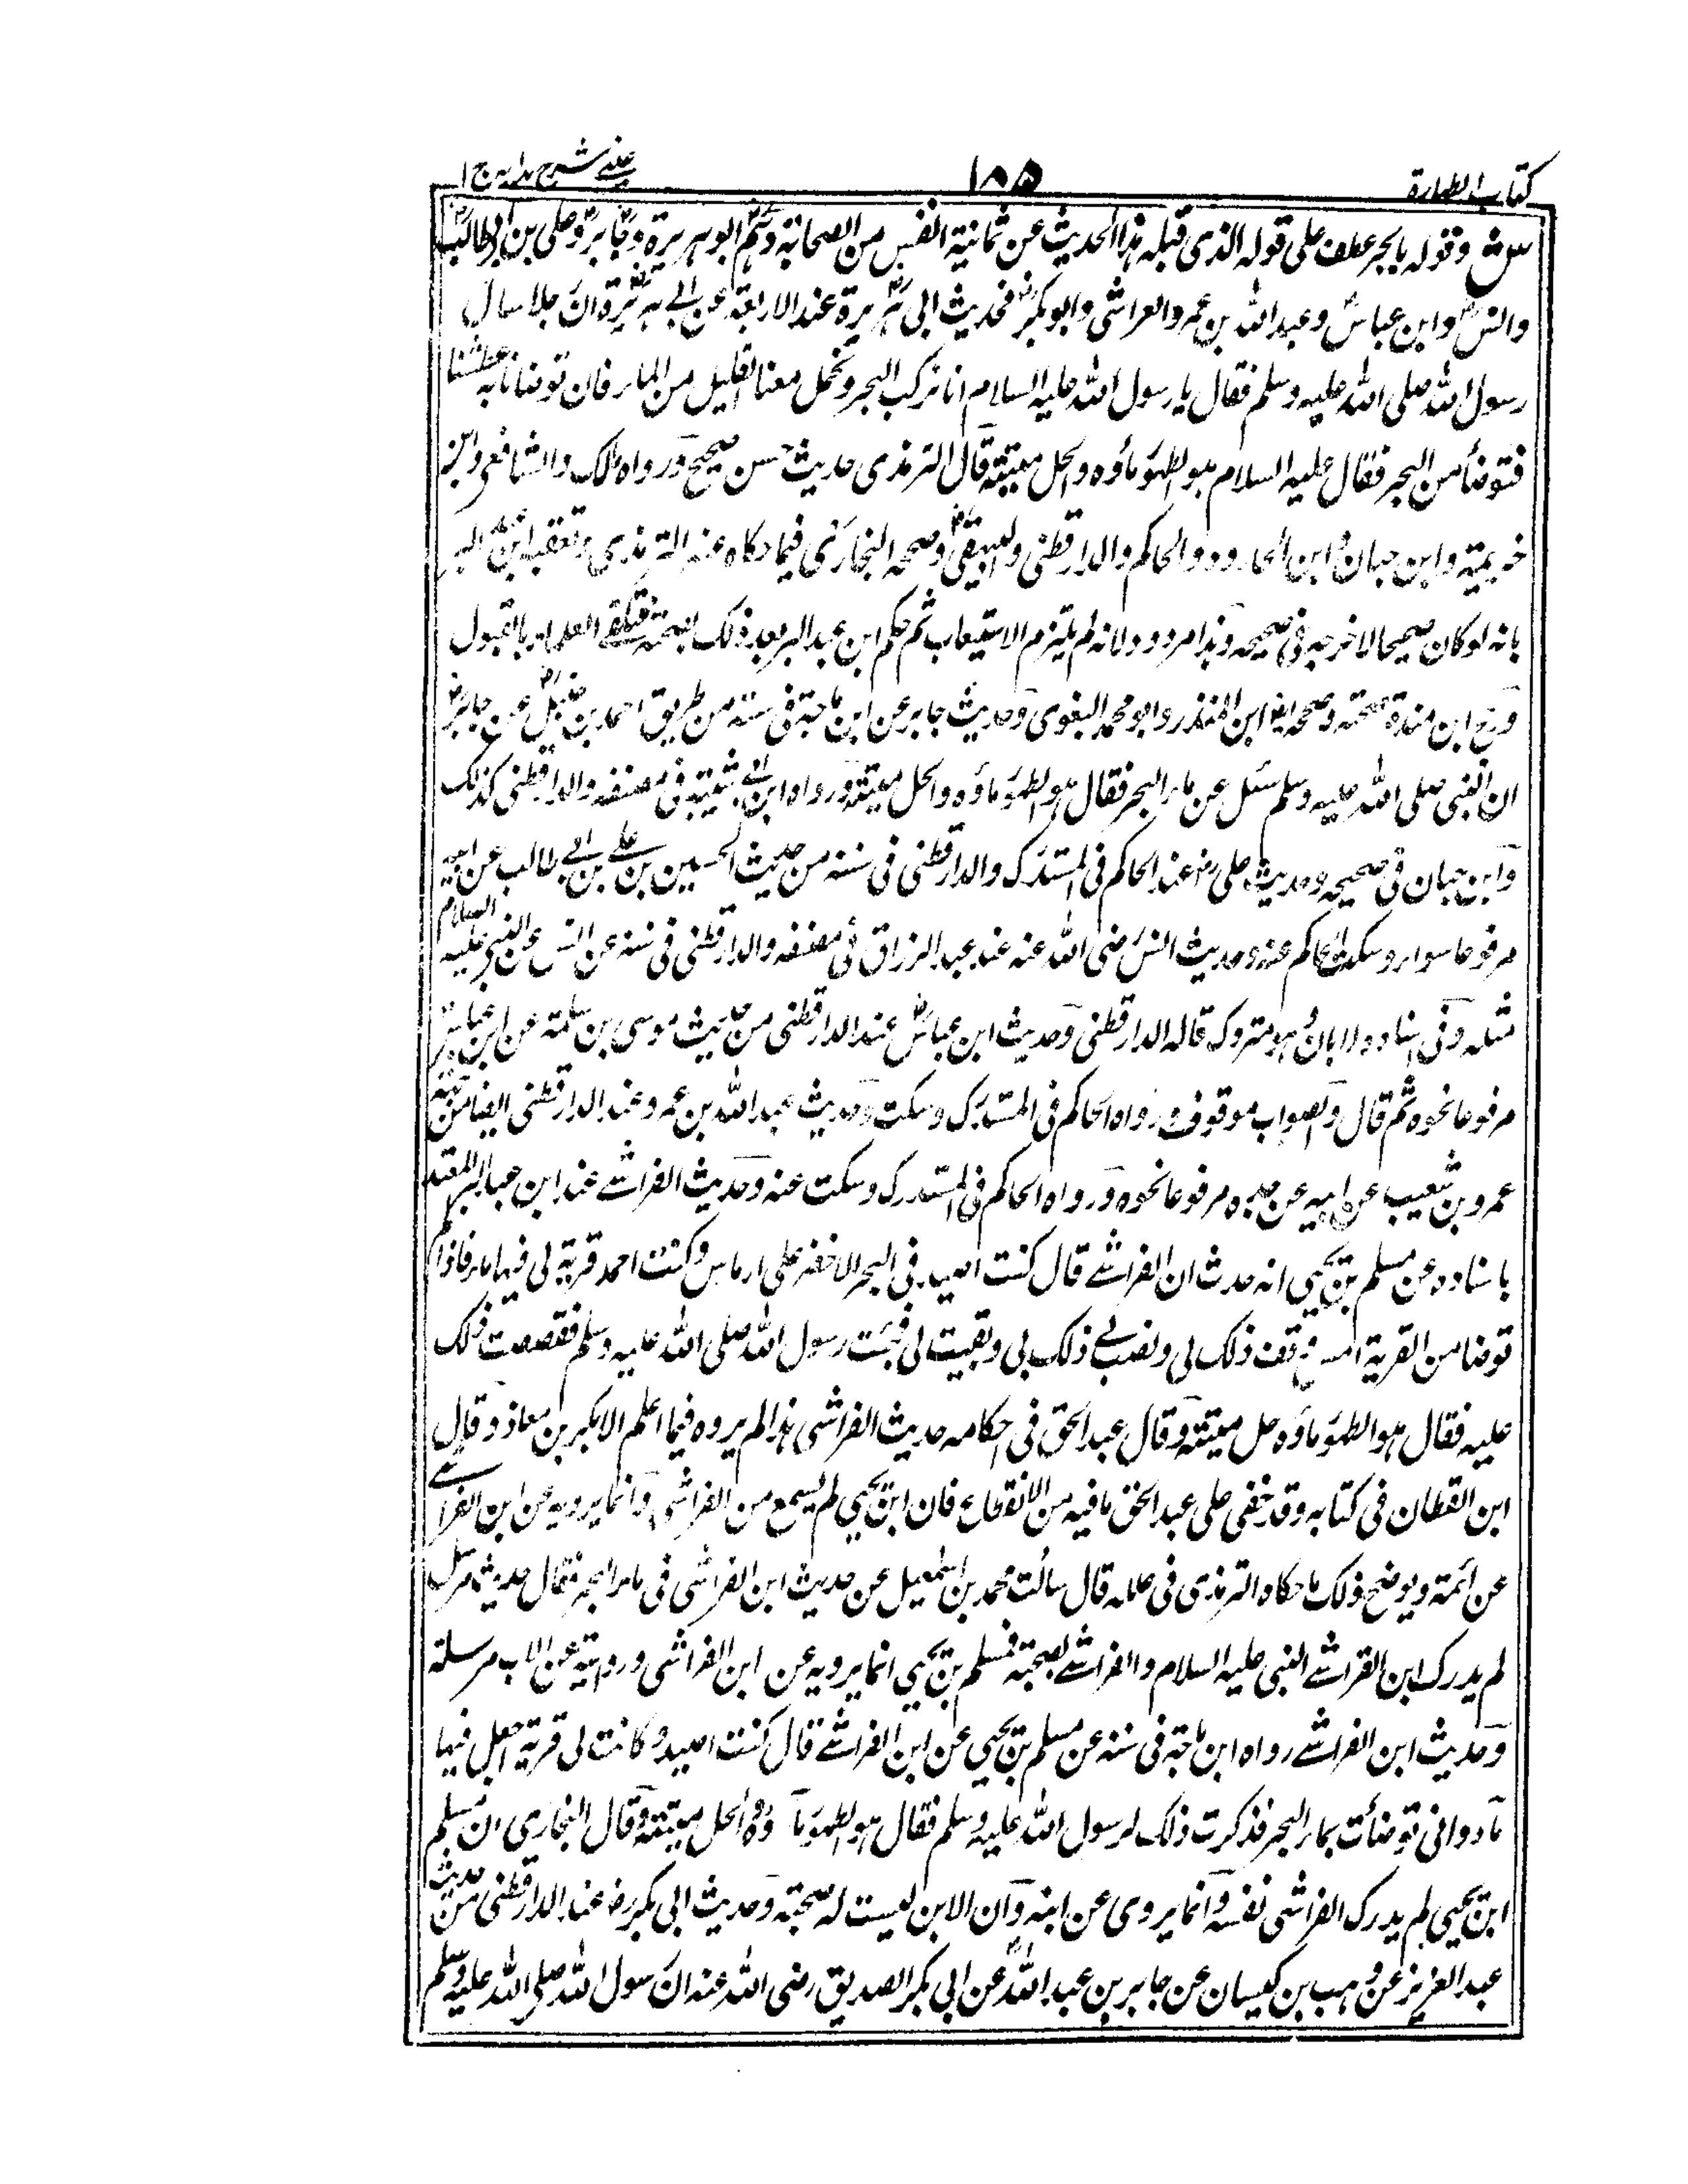 كتاب الطهارة
١٨٥
عينى شرح هدايه ج ١
ش وقوله بالجر عطف على قوله الذى قبله هذا الحديث عن ثمانية انفس من الصحابة وهم ابو هريرة وجابر وعلى بن ابى طالب
وانس وابن عباس وعبد الله بن عمرو الفراشى وابو بكر فحديث ابى هريرة عند الاربعة عن ابے هريرة ان رجلا سال
رسول الله صلى الله عليه وسلم فقال يا رسول الله عليه السلام انا نركب البحر ونحمل معنا القليل من الماء فان توضانا به عطشنا
فنتوضأ من البحر فقال عليه السلام هو الطهور مأوه والحل ميتته قال الترمذى حديث حسن صحيح ورواه مالك والشافعى وابن
خزيمة وابن حبان وابن الجارود والحاكم والدارقطنى والبيهقى وصححه البخارى فيما حكاه عنه الترمذى وتعقبه ابن عبد البر
بانه لو كان صحيحا لاخرجه فى صحيحه وهذا مردود لانه لم يلتزم الاستيعاب ثم حكم ابن عبد البر بعد ذلك بصحته فتلقے العلماء بالقبول
ورجح ابن مندة صحته وصححه ايضا ابن المنذر وابو محمد البغوى وحديث جابر عن ابن ماجة فى سننه من طريق احمد بن حنبل عن جابر
ان النبى صلى الله عليه وسلم سئل عن ماء البحر فقال هو الطهور مأوه والحل ميتته ورواه ابن ابے شيبة فى مصنفه والدارقطنى كذلك
وابن حبان فى صحيحه وحديث على رض عند الحاكم فى المستدرك والدارقطنى فى سننه من حديث الحسين بن علے بن ابے طالب عن ابيه
مرفوعا سواء وسكت الحاكم عنه وحديث انس رضى الله عنه عند عبد الرزاق فى مصنفه والدارقطنى فى سننه عن انس عن النبى عليه السلام
مثله وفى اسناده ابان وهو متروك قاله الدارقطنى وحديث ابن عباس عند الدارقطنى من حديث موسى بن سلمة عن ابن عباس
مرفوعا نحوه ثم قال والصواب موقوف ورواه الحاكم فى المستدرك وسكت وحديث عبد الله بن عمرو عند الدارقطنى ايضا من
عمرو بن شعيب عن ابيه عن جده مرفوعا نحوه ورواه الحاكم فى المستدرك وسكت عنه وحديث الفراشے عند ابن عبد البر
باسناده عن مسلم بن يحيى انه حدث ان الفراشے قال كنت اصيد فى البحر الاخضر على ارماس وكنت احمد قربة لى فيها ماء فاذا لم
توضا من القربة فق ذلك لى وبقيت لى فجئت رسول الله صلى الله عليه وسلم فقصصت ذلك
عليه فقال هو الطهور مأوه حل ميتته وقال عبد الحق فى احكامه حديث الفراشى هذا لم يروه فيما اعلم الا بكر بن معاذ وقال
ابن القطان فى كتابه وقد خفى على عبد الحق ما فيه من الانقطاع فان ابن يحيى لم يسمع من الفراشى وانما يرويه عن ابن الفراشے
عن ائمة ويوضح ذلك ما حكاه الترمذى فى علله قال سالت محمد بن اسمعيل عن حديث ابن الفراشى فى ماء البحر فقال حديث مرسل
لم يدرك ابن الفراشے النبى عليه السلام والفراشے لصحبته فمسلم بن يحيى انما يرويه عن ابن الفراشى وروايته عن الاب مرسلة
وحديث ابن الفراشے رواه ابن ماجة فى سننه عن مسلم بن يحيى عن ابن الفراشے قال كنت اصيد وكانت لى قربة اجعل فيها
ماء وانى توضأت بماء البحر فذكرت ذلك لرسول الله عليه وسلم فقال هو الطهور مأوه والحل ميتته وقال البخارى ان مسلم
ابن يحيى لم يدرك الفراشى نفسه وانما يروى عن ابنه وان الابن ليست له صحبة وحديث ابى بكر رض عند الدارقطنى من حديث
عبد العزيز عن وهب بن كيسان عن جابر بن عبد الله عن ابى بكر الصديق رضى الله عنه ان رسول الله صلى الله عليه وسلم